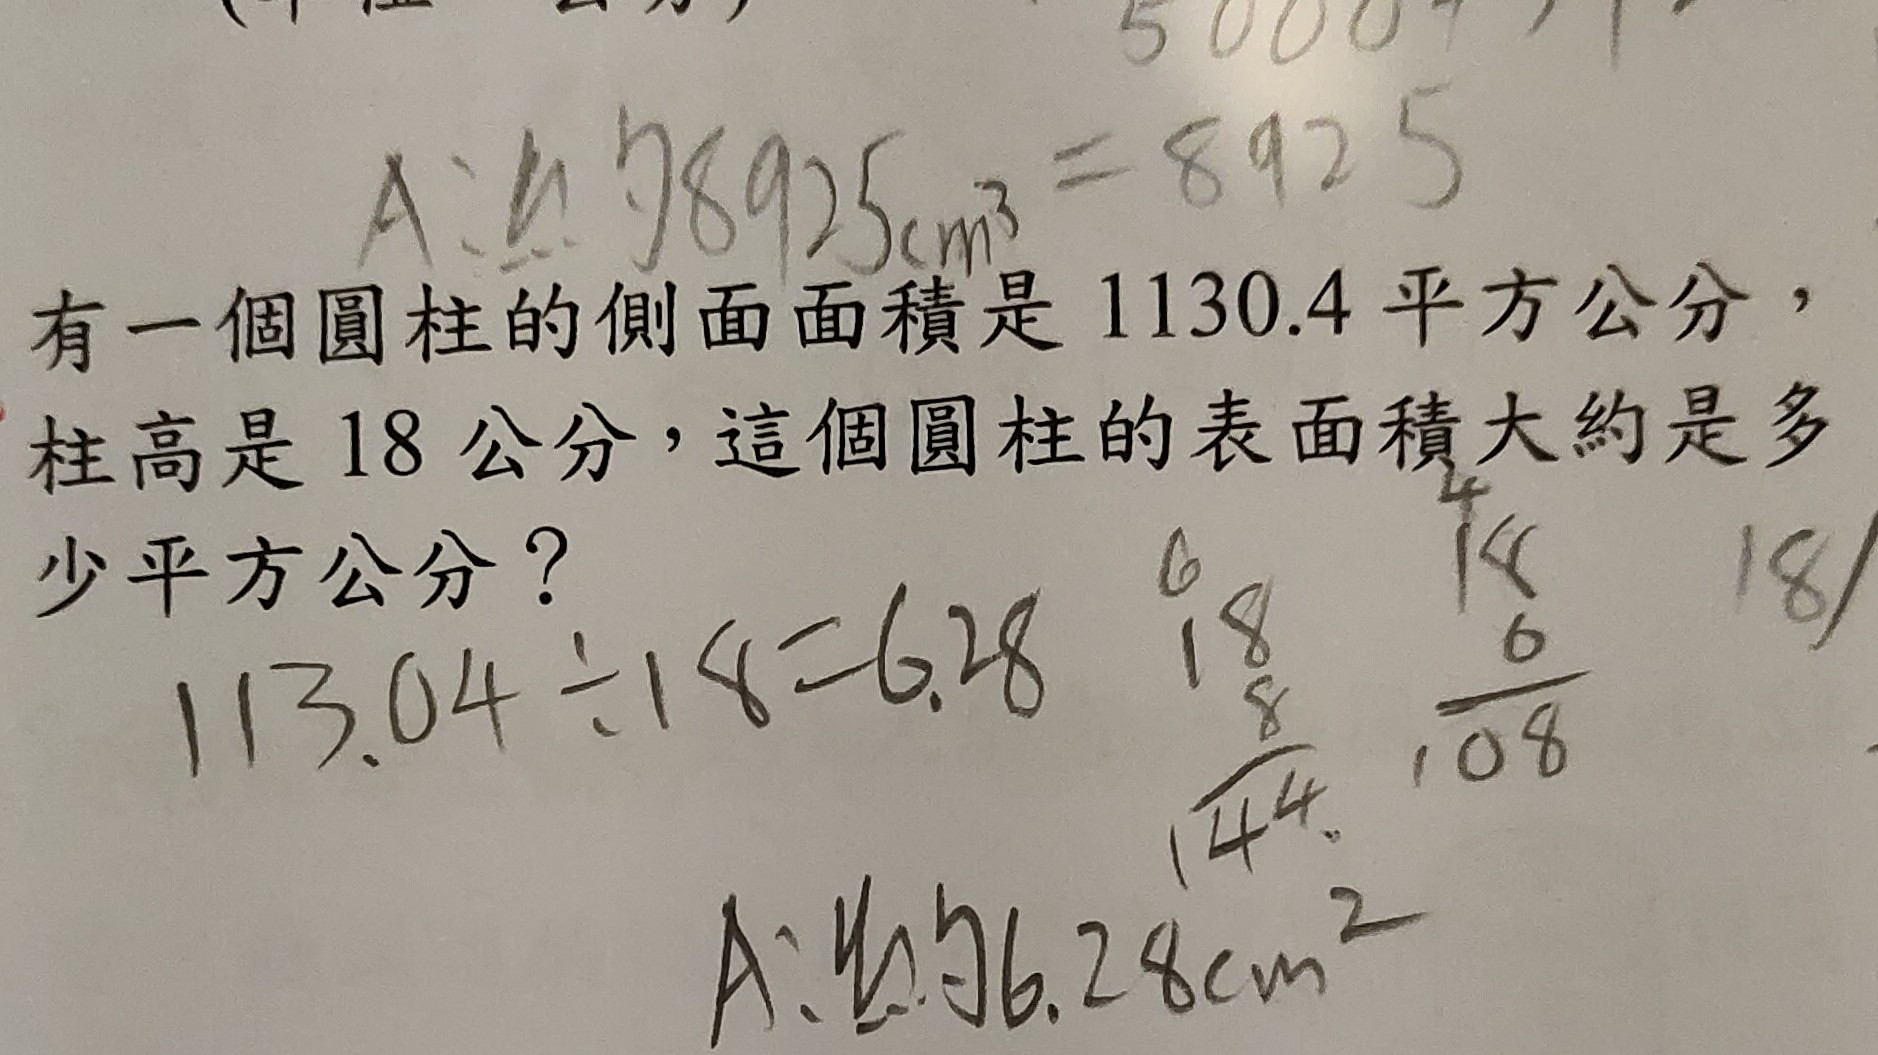 5000
A:約8925cm³ = 8925
有一個圓柱的側面面積是 1130.4 平方公分，
柱高是 18 公分，這個圓柱的表面積大約是多
少平方公分？
113.04÷18=6.28
6
18
8
144.
4
18
6
108
18/
A:約6.28cm²